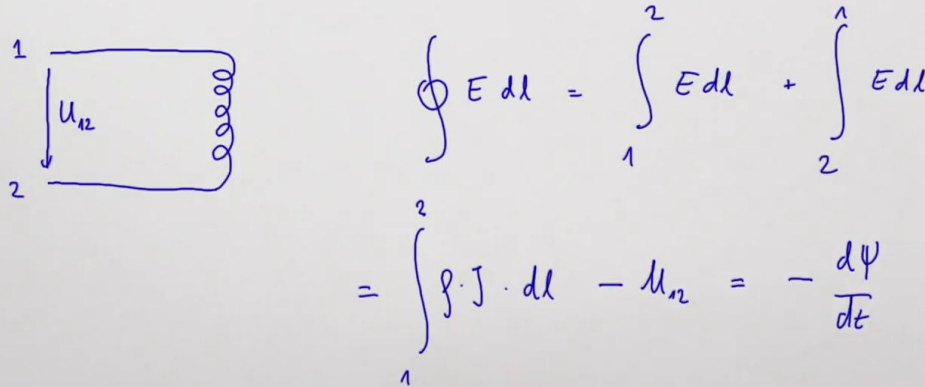 1
U₁₂
2
∮ E dl = ∫₁² E dl + ∫₂¹ E dl
= ∫₁² ρ · J · dl − U₁₂ = − dψ/dt